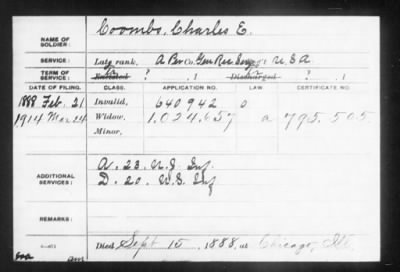 NAME OF SOLDIER: Coombs, Charles E.
SERVICE: Late rank, Co. Gen Rec Serv. U.S.A
TERM OF SERVICE: Enlisted ? , 1 Discharged ? , 1
DATE OF FILING. CLASS. APPLICATION NO. LAW CERTIFICATE NO.
1888 Feb. 21 Invalid, 640942 o
1914 Mar 24 Widow, 1,024,657 a 795,505
Minor,
ADDITIONAL SERVICES: A. 23. U.S Inf
D. 20. U.S. Inf
REMARKS:
Died Sept 15, 1888, at Chicago, Ill.